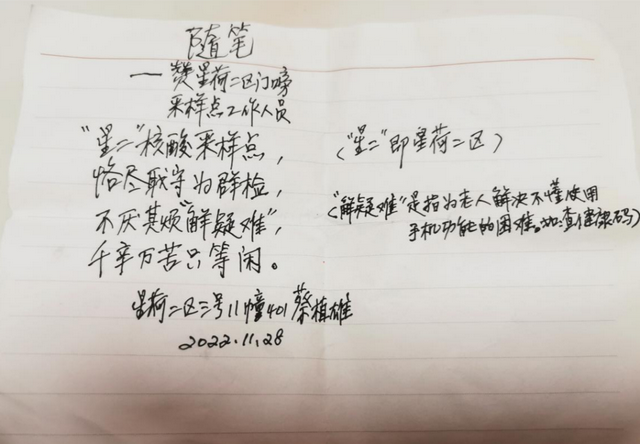 随笔
——赞星荷二区门口旁
采样点工作人员
“星二”核酸采样点，
（“星二”即星荷二区）
恪尽职守为群检，
不厌其烦“解疑难”，
（“解疑难”是指为老人解决不懂使用
手机功能的困难。如查健康码）
千辛万苦只等闲。
星荷二区三号11幢401蔡植雄
2022.11.28